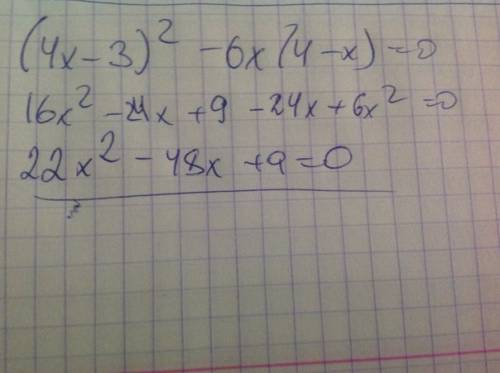 (4x-3)² -6x(4-x)=0
16x² -24x +9 -24x+6x² =0
22x² -48x +9=0